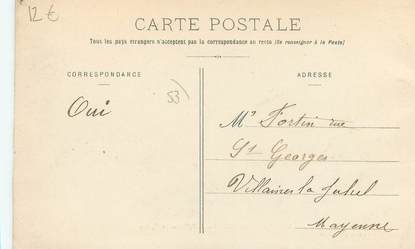 12 €
CARTE POSTALE
Tous les pays étrangers n'acceptent pas la correspondance au recto (Se renseigner à la Poste)
CORRESPONDANCE
ADRESSE
Oui
53)
Mr Fortin rue
St Georges
Villaines la Juhel
Mayenne